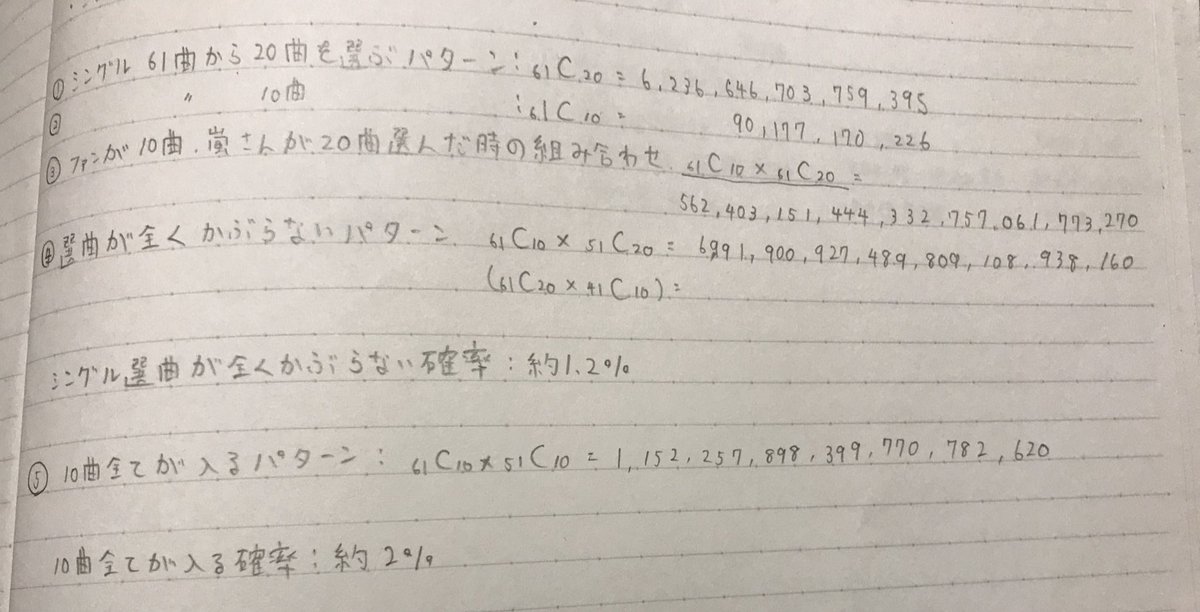 ① シングル 61曲から20曲を選ぶパターン:₆₁C₂₀ = 6,236,646,703,759,395
② 〃 10曲 :₆₁C₁₀ = 90,177,170,226
③ ファンが10曲、嵐さんが20曲選んだ時の組み合わせ ₆₁C₁₀×₆₁C₂₀ =
562,403,151,444,332,757,061,773,270
④ 選曲が全くかぶらないパターン ₆₁C₁₀ × ₅₁C₂₀ = 6991,900,927,489,809,108,938,160
(₆₁C₂₀ × ₄₁C₁₀) =
シングル選曲が全くかぶらない確率:約1.2%
⑤ 10曲全てが入るパターン:₆₁C₁₀×₅₁C₁₀ = 1,152,257,898,399,770,782,620
10曲全てが入る確率:約2%